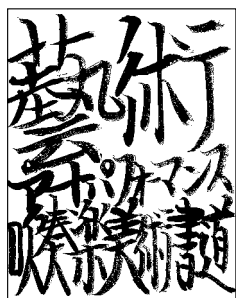 藝術
パフォーマンス
吹奏楽美術書道